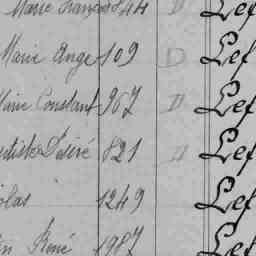 Marie François 844 D Lef
Marie Ange 109 D Lef
Marie Constant 967 D Lef
Désiré 821 D Lef
olas 1249 Lef
René 1987 Lef